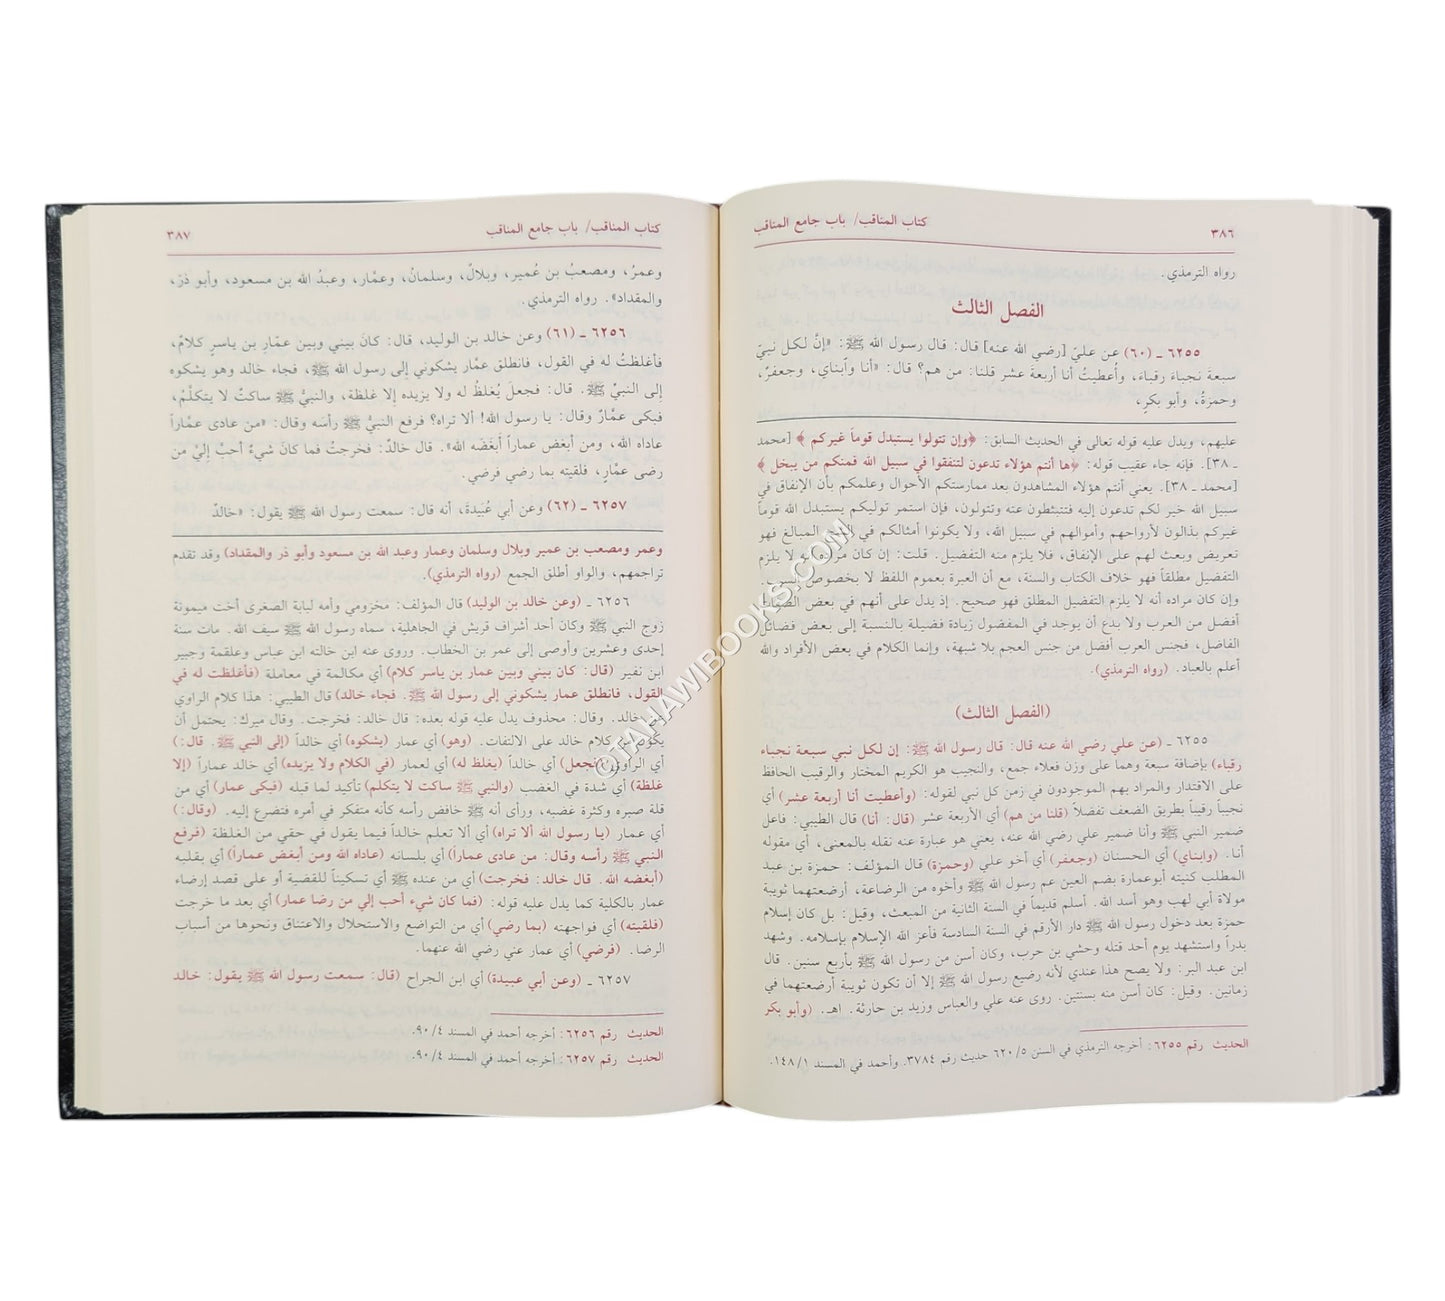 ٣٨٦
كتاب المناقب/ باب جامع المناقب
رواه الترمذي.
الفصل الثالث
٦٢٥٥ ـ (٦٠) عن عليّ [رضي الله عنه] قال: قال رسول الله ﷺ: «إنَّ لكل نبيّ
سبعةَ نجباءَ رقباءَ، وأُعطيتُ أنا أربعةَ عشر قلنا: من هم؟ قال: «أنا وآبناي، وجعفرٌ،
وحمزةُ، وأبو بكرٍ،
عليهم، ويدل عليه قوله تعالى في الحديث السابق: ﴿وإن تتولوا يستبدل قوماً غيركم﴾ [محمد
ـ ٣٨]. فإنه جاء عقيب قوله: ﴿ها أنتم هؤلاء تدعون لتنفقوا في سبيل الله فمنكم من يبخل﴾
[محمد ـ ٣٨]. يعني أنتم هؤلاء المشاهدون بعد ممارستكم الأحوال وعلمكم بأن الإنفاق في
سبيل الله خير لكم تدعون إليه فتتبطئون عنه وتتولون، فإن استمر توليكم يستبدل الله قوماً
غيركم بذالون لأرواحهم وأموالهم في سبيل الله، ولا يكونوا أمثالكم في الشح المبالغ فهو
تعريض وبعث لهم على الإنفاق، فلا يلزم منه التفضيل. قلت: إن كان مراده أنه لا يلزم
التفضيل مطلقاً فهو خلاف الكتاب والسنة، مع أن العبرة بعموم اللفظ لا بخصوص السبب.
وإن كان مراده أنه لا يلزم التفضيل المطلق فهو صحيح. إذ يدل على أنهم في بعض الصفات
أفضل من العرب ولا بدع أن يوجد في المفضول زيادة فضيلة بالنسبة إلى بعض فضائل
الفاضل، فجنس العرب أفضل من جنس العجم بلا شبهة، وإنما الكلام في بعض الأفراد والله
أعلم بالعباد. (رواه الترمذي).
(الفصل الثالث)
٦٢٥٥ ـ (عن علي رضي الله عنه قال: قال رسول الله ﷺ: إن لكل نبي سبعة نجباء
رقباء) بإضافة سبعة وهما على وزن فعلاء جمع، والنجيب هو الكريم المختار والرقيب الحافظ
على الاقتدار والمراد بهم الموجودون في زمن كل نبي لقوله: (وأعطيت أنا أربعة عشر) أي
نجيباً رقيباً بطريق الضعف تفضلاً (قلنا من هم) أي الأربعة عشر (قال: أنا) قال الطيبي: فاعل
ضمير النبي ﷺ وأنا ضمير علي رضي الله عنه، يعني هو عبارة عنه نقله بالمعنى، أي مقوله
أنا. (وابناي) أي الحسنان (وجعفر) أي أخو علي (وحمزة) قال المؤلف: حمزة بن عبد
المطلب كنيته أبوعمارة بضم العين عم رسول الله ﷺ وأخوه من الرضاعة، أرضعتهما ثويبة
مولاة أبي لهب وهو أسد الله. أسلم قديماً في السنة الثانية من المبعث، وقيل: بل كان إسلام
حمزة بعد دخول رسول الله ﷺ دار الأرقم في السنة السادسة فأعز الله الإسلام بإسلامه. وشهد
بدراً واستشهد يوم أحد قتله وحشي بن حرب، وكان أسن من رسول الله ﷺ بأربع سنين. قال
ابن عبد البر: ولا يصح هذا عندي لأنه رضيع رسول الله ﷺ إلا أن تكون ثويبة أرضعتهما في
زمانين. وقيل: كان أسن منه بسنتين. روى عنه علي والعباس وزيد بن حارثة. اهـ. (وأبو بكر
الحديث رقم ٦٢٥٥: أخرجه الترمذي في السنن ٥/ ٦٢٠ حديث رقم ٣٧٨٤. وأحمد في المسند ١/ ١٤٨.
كتاب المناقب/ باب جامع المناقب
٣٨٧
وعمرُ، ومصعبُ بن عُمير، وبلالٌ، وسلمانُ، وعمَّار، وعبدُ الله بن مسعود، وأبو ذَرّ،
والمقداد». رواه الترمذي.
٦٢٥٦ ـ (٦١) وعن خالد بن الوليد، قال: كانَ بيني وبين عمَّارِ بن ياسرٍ كلامٌ،
فأغلظتُ له في القول، فانطلق عمَّار يشكوني إلى رسول الله ﷺ، فجاء خالد وهو يشكوه
إلى النبيِّ ﷺ. قال: فجعلَ يُغلظُ له ولا يزيده إلا غلظة، والنبيُّ ﷺ ساكتٌ لا يتكلَّمُ،
فبكى عمَّارٌ وقال: يا رسول الله! ألا تراه؟ فرفع النبيُّ ﷺ رأسه وقال: «من عادى عمَّاراً
عاداه الله، ومن أبغض عماراً أبغضَه الله». قال خالدٌ: فخرجتُ فما كانَ شيءٌ أحبَّ إليَّ من
رضى عمَّارٍ، فلقيته بما رضي فرضي.
٦٢٥٧ ـ (٦٢) وعن أبي عُبيدةَ، أنه قال: سمعت رسول الله ﷺ يقول: «خالدٌ
وعمر ومصعب بن عمير وبلال وسلمان وعمار وعبد الله بن مسعود وأبو ذر والمقداد) وقد تقدم
تراجمهم، والواو أطلق الجمع (رواه الترمذي).
٦٢٥٦ ـ (وعن خالد بن الوليد) قال المؤلف: مخزومي وأمه لبابة الصغرى أخت ميمونة
زوج النبي ﷺ وكان أحد أشراف قريش في الجاهلية، سماه رسول الله ﷺ سيف الله. مات سنة
إحدى وعشرين وأوصى إلى عمر بن الخطاب. وروى عنه ابن خالته ابن عباس وعلقمة وجبير
ابن نفير (قال: كان بيني وبين عمار بن ياسر كلام) أي مكالمة في معاملة (فأغلظت له في
القول، فانطلق عمار يشكوني إلى رسول الله ﷺ. فجاء خالد) قال الطيبي: هذا كلام الراوي
عن خالد. وقال: محذوف يدل عليه قوله بعده: قال خالد: فخرجت. وقال ميرك: يحتمل أن
يكون من كلام خالد على الالتفات. (وهو) أي عمار (يشكوه) أي خالداً (إلى النبي ﷺ. قال:)
أي الراوي (فجعل) أي خالداً (يغلظ له) أي لعمار (في الكلام ولا يزيده) أي خالد عماراً (إلا
غلظة) أي شدة في الغضب (والنبي ﷺ ساكت لا يتكلم) تأكيد لما قبله (فبكى عمار) أي من
قلة صبره وكثرة غضبه، ورأى أنه ﷺ خافض رأسه كأنه متفكر في أمره فتضرع إليه. (وقال:)
أي عمار (يا رسول الله ألا تراه) أي ألا تعلم خالداً فيما يقول في حقي من الغلظة (فرفع
النبي ﷺ رأسه وقال: من عادى عماراً) أي بلسانه (عاداه الله ومن أبغض عماراً) أي بقلبه
(أبغضه الله. قال خالد: فخرجت) أي من عنده ﷺ أي تسكيناً للقضية أو على قصد إرضاء
عمار بالكلية كما يدل عليه قوله: (فما كان شيء أحب إلي من رضا عمار) أي بعد ما خرجت
(فلقيته) أي فواجهته (بما رضي) أي من التواضع والاستحلال والاعتناق ونحوها من أسباب
الرضا. (فرضي) أي عمار عني رضي الله عنهما.
٦٢٥٧ ـ (وعن أبي عبيدة) أي ابن الجراح (قال: سمعت رسول الله ﷺ يقول: خالد
الحديث رقم ٦٢٥٦: أخرجه أحمد في المسند ٤/ ٩٠.
الحديث رقم ٦٢٥٧: أخرجه أحمد في المسند ٤/ ٩٠.
©TAHAWIBOOKS.COM